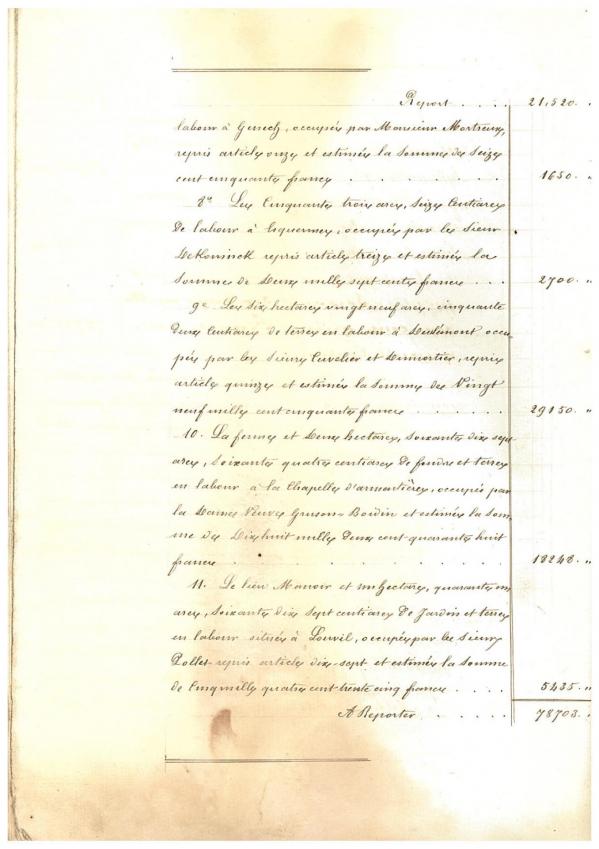 Report .... 21,520. "
labour à Genech, occupées par Monsieur Mortreux,
repris article onze et estimées la somme de Seize
cent cinquante francs ...... 1650. "
8° Les Cinquante trois ares, seize Centiares
De labour à Esquermes, occupées par le sieur
DeKoninck repris article treize et estimés la
Somme de Deux mille sept cents francs .. 2700 "
9e Les Six hectares vingt neuf ares, cinquante
Deux Centiares de terres en labour à Deûlémont occu-
pés par les Sieurs Cuvelier et Dumortier, repris
article quinze et estimés la Somme de Vingt
neuf mille cent cinquante francs ...... 29150. "
10. La ferme et Deux hectares, soixante dix sept
ares, soixante quatre centiares De fonds et terres
en labour à la Chapelle d'armentières, occupés par
la Dame Veuve Gruson-Boidin et estimés la Som-
me de Dix huit mille Deux cent quarante huit
francs ........ 18248. "
11. Le lieu Manoir et un hectare, quarante un
ares, soixante dix sept centiares De Jardin et terres
en labour situés à Louvil, occupés par le Sieur
Pollet repris article dix-sept et estimés la Somme
de Cinq mille quatre cent trente cinq francs .... 5435. "
A Reporter ..... 78703. "